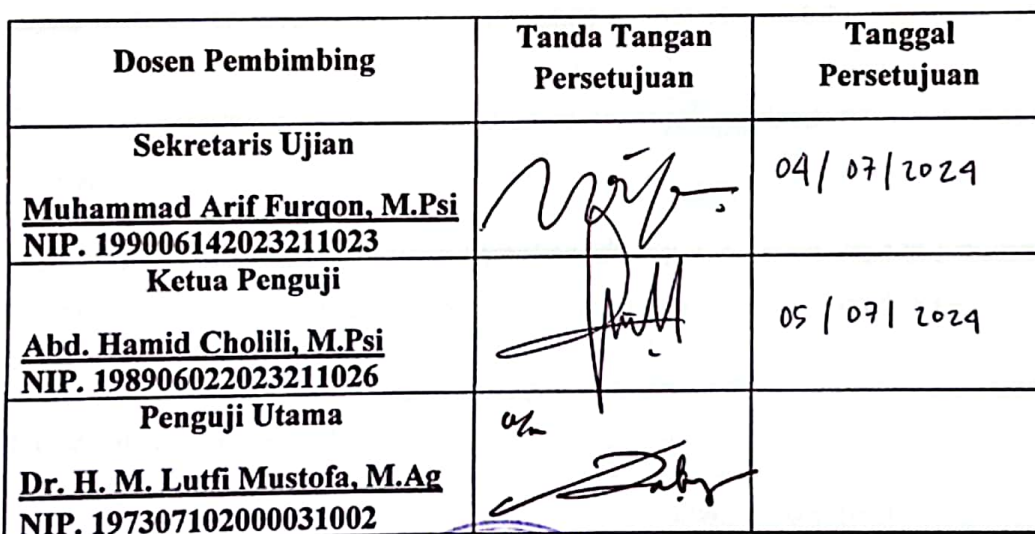 Dosen Pembimbing
Tanda Tangan
Persetujuan
Tanggal
Persetujuan
Sekretaris Ujian
Muhammad Arif Furqon, M.Psi
NIP. 199006142023211023
04/07/2024
Ketua Penguji
Abd. Hamid Cholili, M.Psi
NIP. 198906022023211026
05/07/2024
Penguji Utama
Dr. H. M. Lutfi Mustofa, M.Ag
NIP. 197307102000031002
a/n